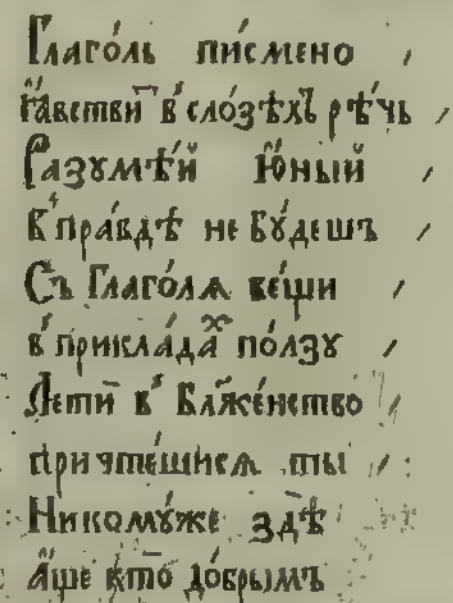 Глаго́ль пи́смено ,
ꙗ҆́вствꙋ в̾ сло́зѣхъ рѣ́чь ,
Разꙋмѣ́й ю҆́ный ,
В̾ пра́вдѣ не бꙋ́дешъ ,
Съ Глаго́лѧ ве́щи ,
в̾ прикла́дахъ по́лзꙋ ,
Лети̑ в̾ Блаже́нство ,
причте́шисѧ ты , :
Никомꙋ́же здѣ̀
а҆́ще кто̀ до́брымъ